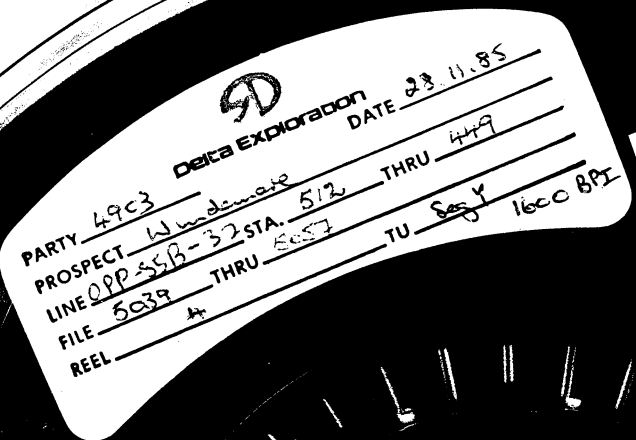 Delta Exploration
DATE 28.11.85
PARTY 49C3
PROSPECT Windemere
LINE OPP-SSB-37 STA. 512 THRU 449
FILE 5039 THRU 5057 TU Seg Y 1600 BPI
REEL 4